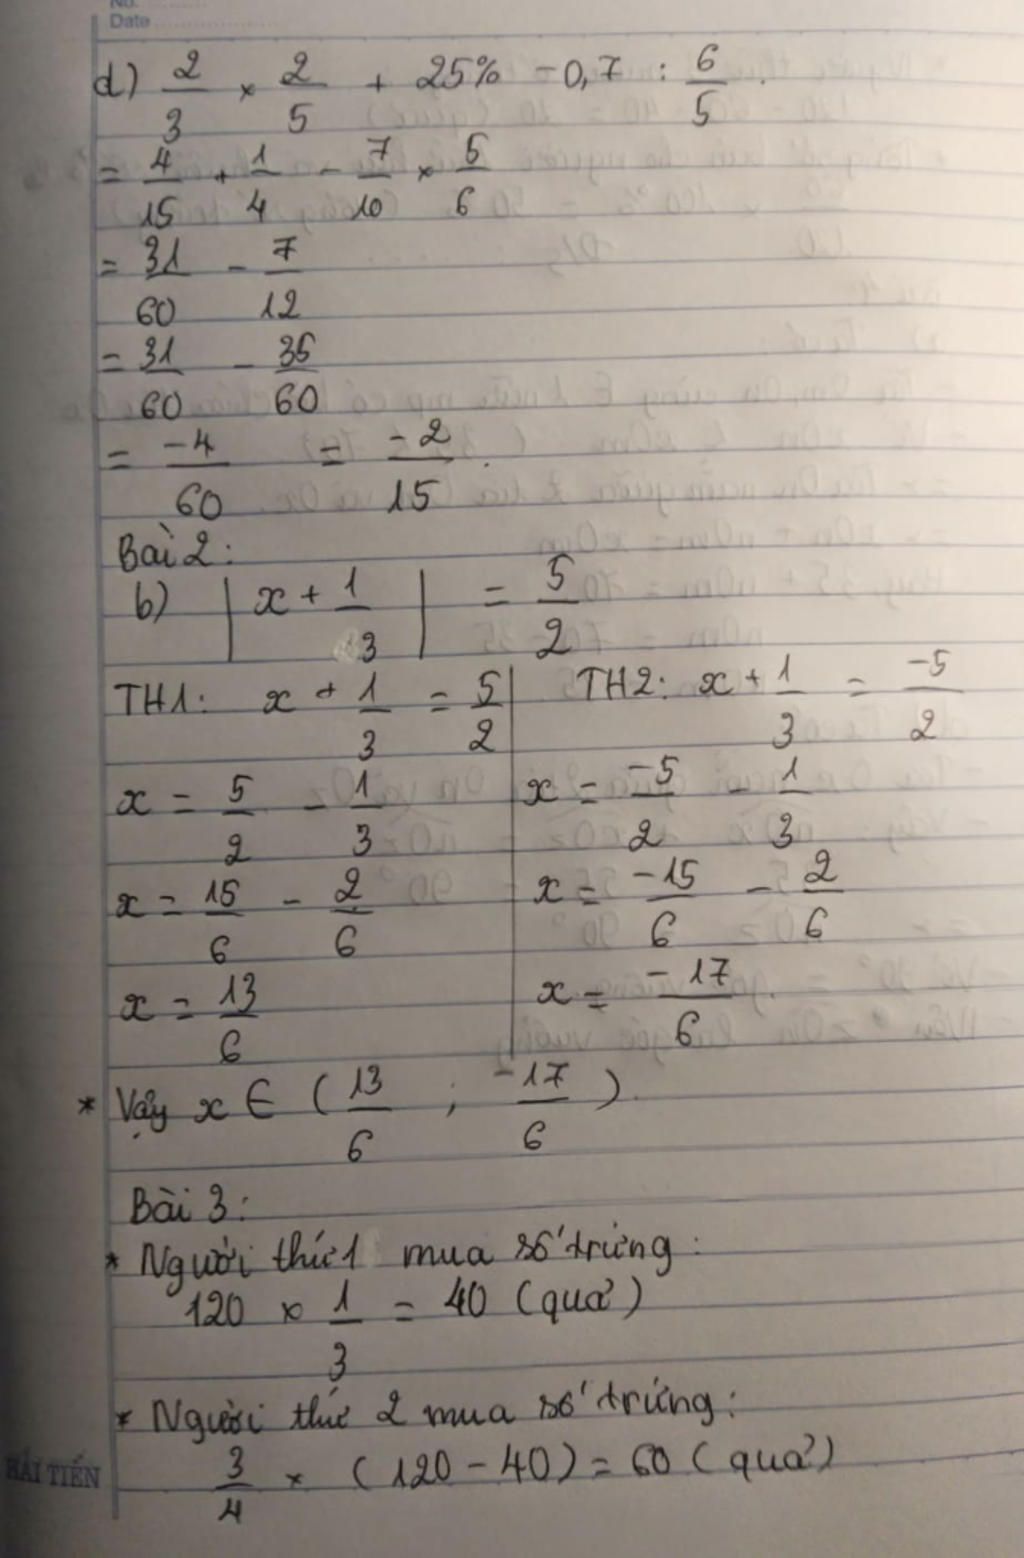 No.
Date
d) 2/3 × 2/5 + 25% - 0,7 : 6/5.
= 4/15 + 1/4 - 7/10 × 5/6
= 31/60 - 7/12
= 31/60 - 35/60
= -4/60 = -2/15.
Bài 2:
b) |x + 1/3| = 5/2
TH1: x + 1/3 = 5/2
x = 5/2 - 1/3
x = 15/6 - 2/6
x = 13/6
TH2: x + 1/3 = -5/2
x = -5/2 - 1/3
x = -15/6 - 2/6
x = -17/6
* Vậy x ∈ (13/6 ; -17/6).
Bài 3:
* Người thứ 1 mua số trứng:
120 × 1/3 = 40 (quả)
* Người thứ 2 mua số trứng:
3/4 × (120 - 40) = 60 (quả)
HẢI TIẾN